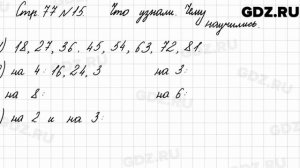 Стр. 77 № 15. Что узнали. Чему
научились
GDZ.RU
) 18, 27, 36. 45, 54, 63, 72, 81
) на 4: 16, 24, 3 на 3:
на 8: на 6:
) на 2 и на 3:
GDZ.RU